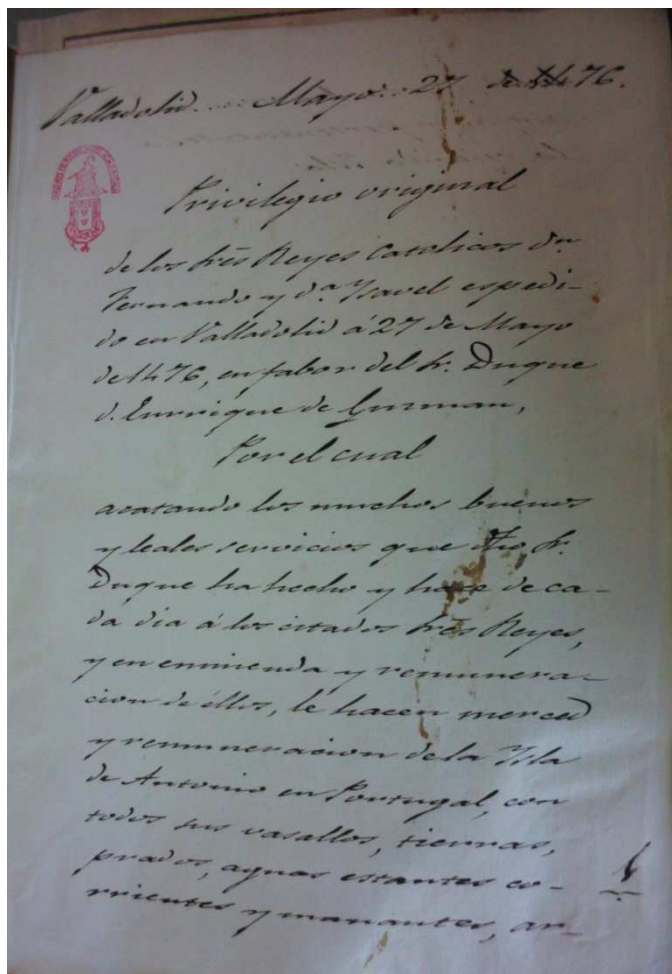 Valladolid... Mayo.. 27 de 1476.
Privilegio original
de los Srēs Reyes Catolicos Dn.
Fernando y d.ª Ysavel espedi-
do en Valladolid á 27 de Mayo
de 1476, en fabor del Sr. Duque
d. Enrrique de Guzman,
Por el cual
acatando los muchos buenos
y leales servicios que dho Sr.
Duque ha hecho y hace de ca-
da dia á los citados Srēs Reyes,
y en enmienda y remunera-
cion de éllos, le hacen merced
y remuneracion de la Ysla
de Antonio en Portugal, con
todos sus vasallos, tierras,
prados, aguas estantes co-
rrientes y manantes, ar-